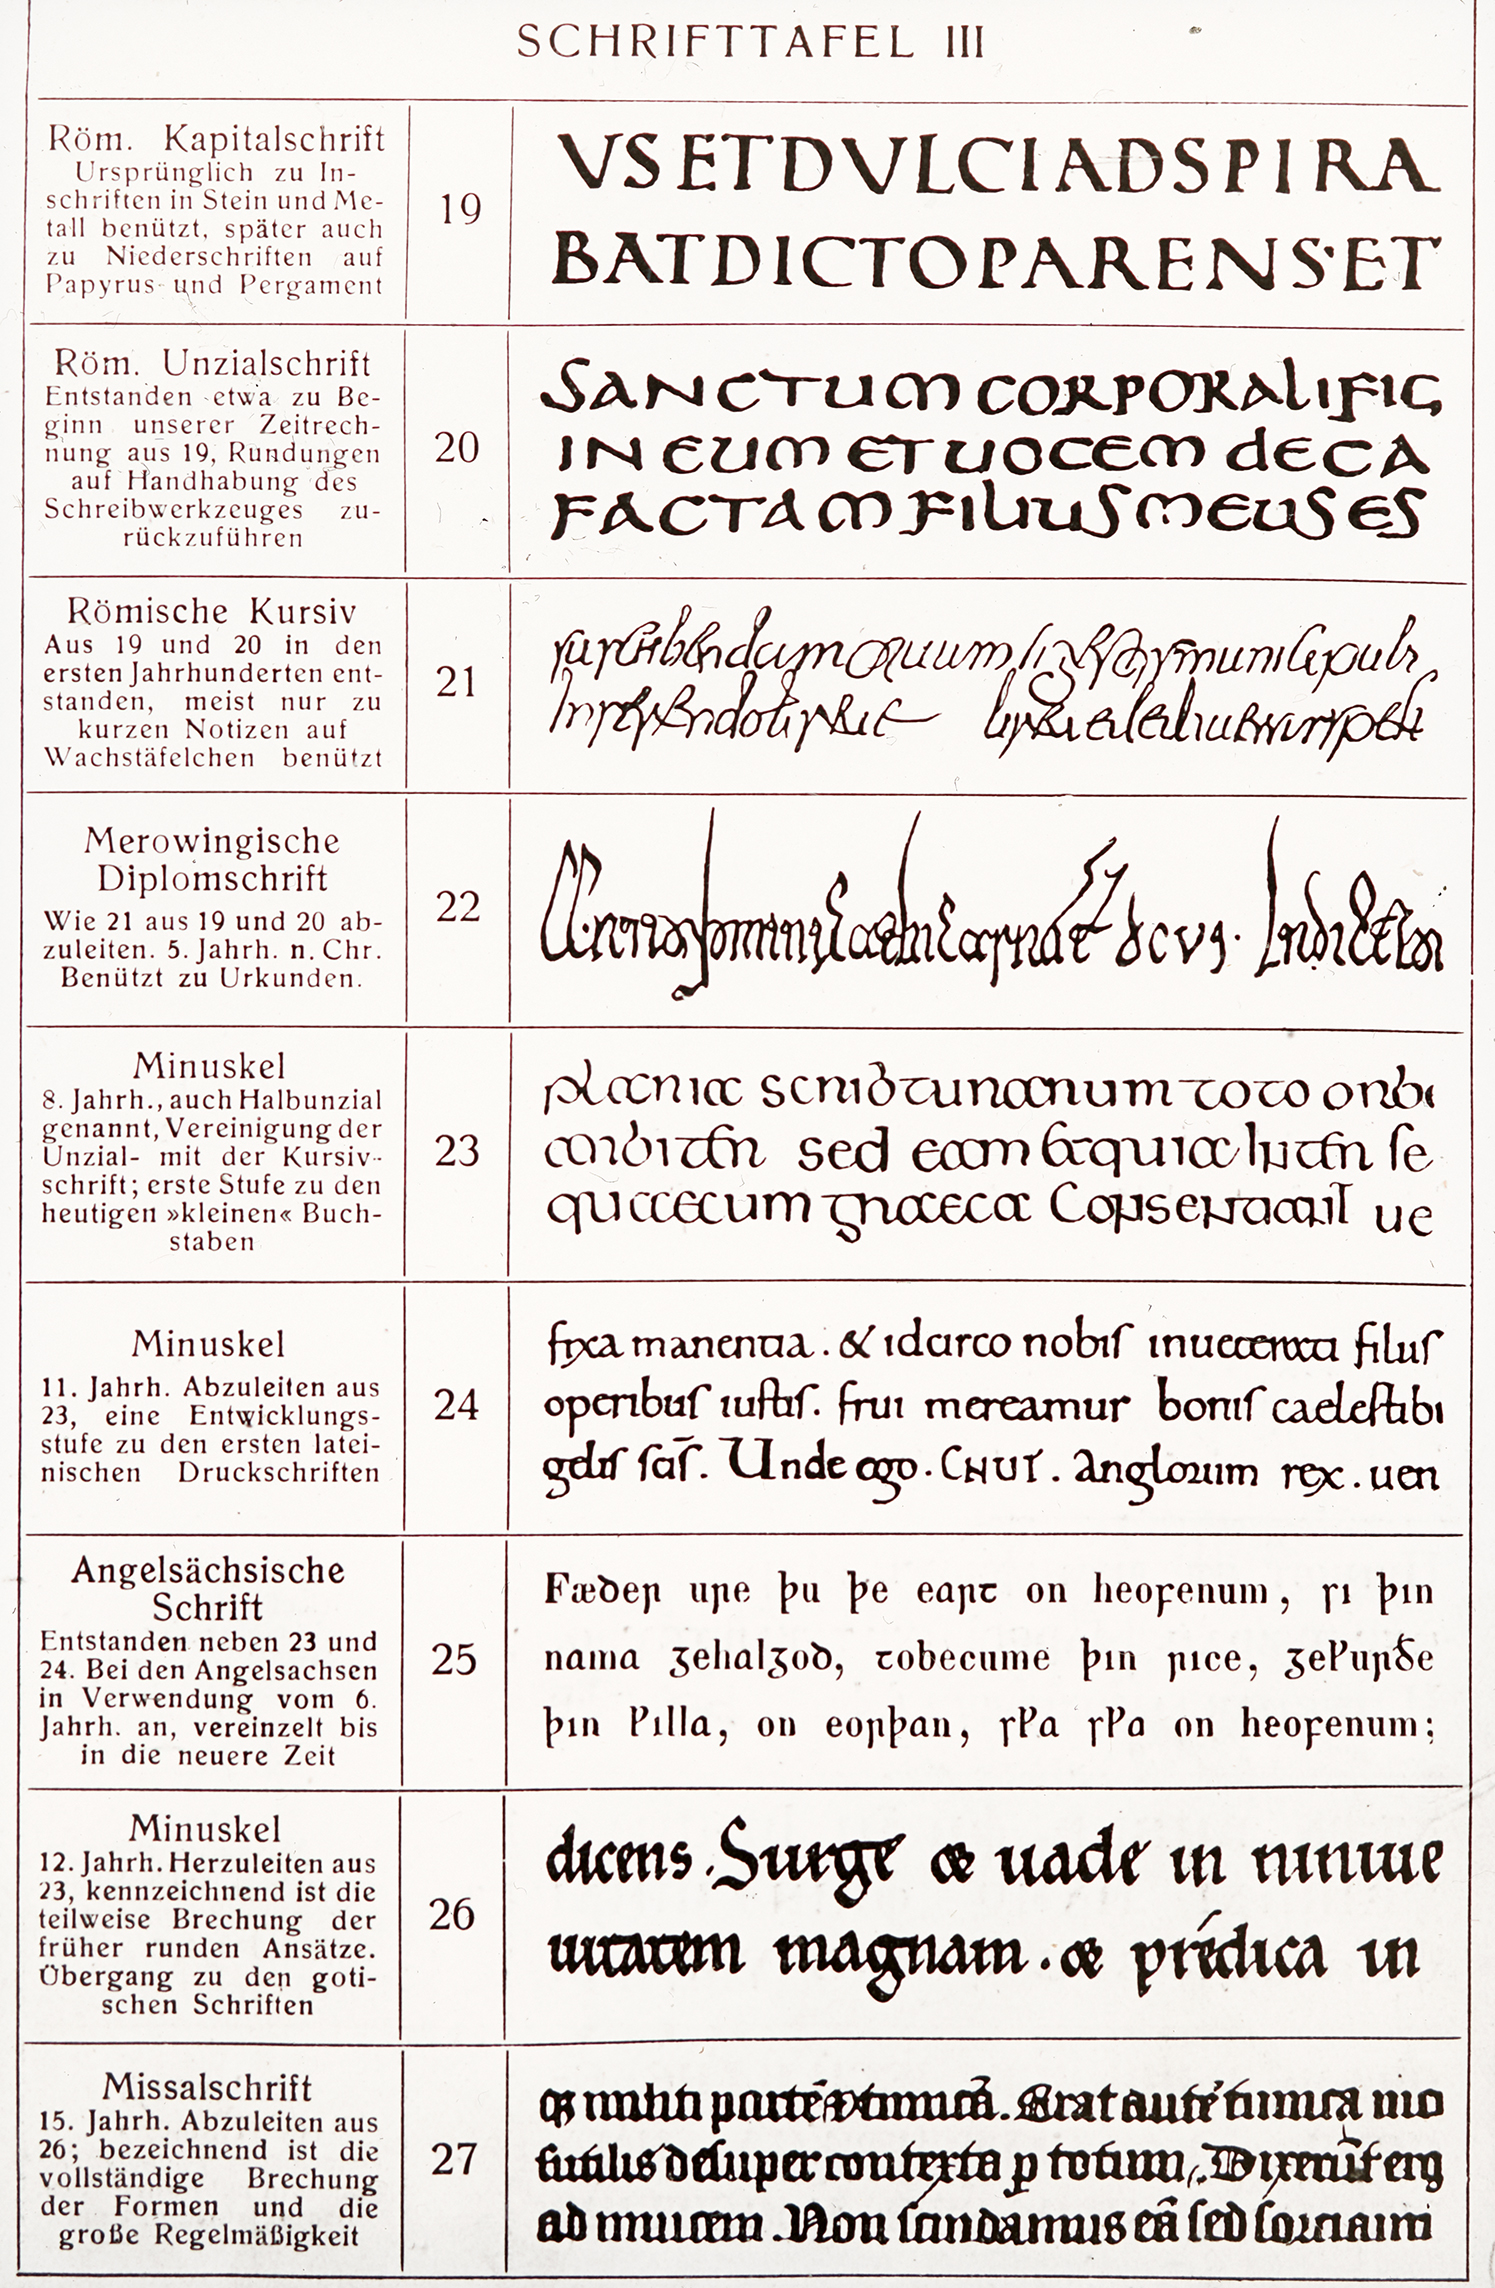 SCHRIFTTAFEL III
Röm. Kapitalschrift
Ursprünglich zu In-
schriften in Stein und Me-
tall benützt, später auch
zu Niederschriften auf
Papyrus und Pergament
19
VSETDVLCIADSPIRA
BATDICTOPARENS·ET
Röm. Unzialschrift
Entstanden etwa zu Be-
ginn unserer Zeitrech-
nung aus 19, Rundungen
auf Handhabung des
Schreibwerkzeuges zu-
rückzuführen
20
SANCTUM CORPORALIFIG
IN EUM ET UOCEM DE CA
FACTAM FILIUS MEUS ES
Römische Kursiv
Aus 19 und 20 in den
ersten Jahrhunderten ent-
standen, meist nur zu
kurzen Notizen auf
Wachstäfelchen benützt
21
Merowingische
Diplomschrift
Wie 21 aus 19 und 20 ab-
zuleiten. 5. Jahrh. n. Chr.
Benützt zu Urkunden.
22
Minuskel
8. Jahrh., auch Halbunzial
genannt, Vereinigung der
Unzial- mit der Kursiv-
schrift; erste Stufe zu den
heutigen »kleinen« Buch-
staben
23
scribturarum toto orbi
sed eam & quia
ue
Minuskel
11. Jahrh. Abzuleiten aus
23, eine Entwicklungs-
stufe zu den ersten latei-
nischen Druckschriften
24
fixa manentia . & idcirco nobiſ filiiſ
operibuſ iuſtiſ. frui mereamur boniſ caeleſtibi
Unde ego . CNUT . Anglorum rex . uen
Angelsächsische
Schrift
Entstanden neben 23 und
24. Bei den Angelsachsen
in Verwendung vom 6.
Jahrh. an, vereinzelt bis
in die neuere Zeit
25
Fæꝺeꞃ uꞃe þu þe eaꞃꞇ on heoꝼenum, ꞅı þın
nama ᵹehalᵹoꝺ, ꞇobecume þın ꞃıce, ᵹeƿuꞃðe
þın ƿılla, on eoꞃþan, ꞅƿa ꞅƿa on heoꝼenum;
Minuskel
12. Jahrh. Herzuleiten aus
23, kennzeichnend ist die
teilweise Brechung der
früher runden Ansätze.
Übergang zu den goti-
schen Schriften
26
dicens . Surge & uade in niniue
magnam . & predica in
Missalschrift
15. Jahrh. Abzuleiten aus
26; bezeichnend ist die
vollständige Brechung
der Formen und die
große Regelmäßigkeit
27
militi partē & tunicā. Erat autē tunica
ſutilis deſuper contexta p totum, Dixerūt erg
ad inuicem . Non ſcindamus eā ſed